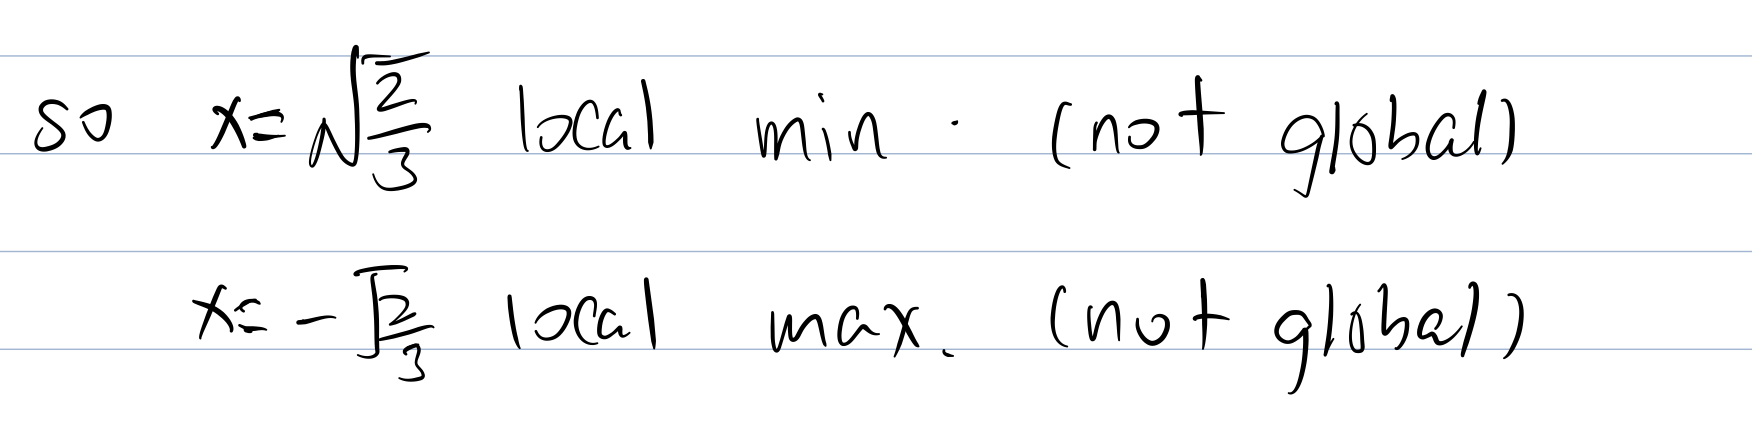 so x=√(2/3) local min. (not global)
x=-√(2/3) local max. (not global)